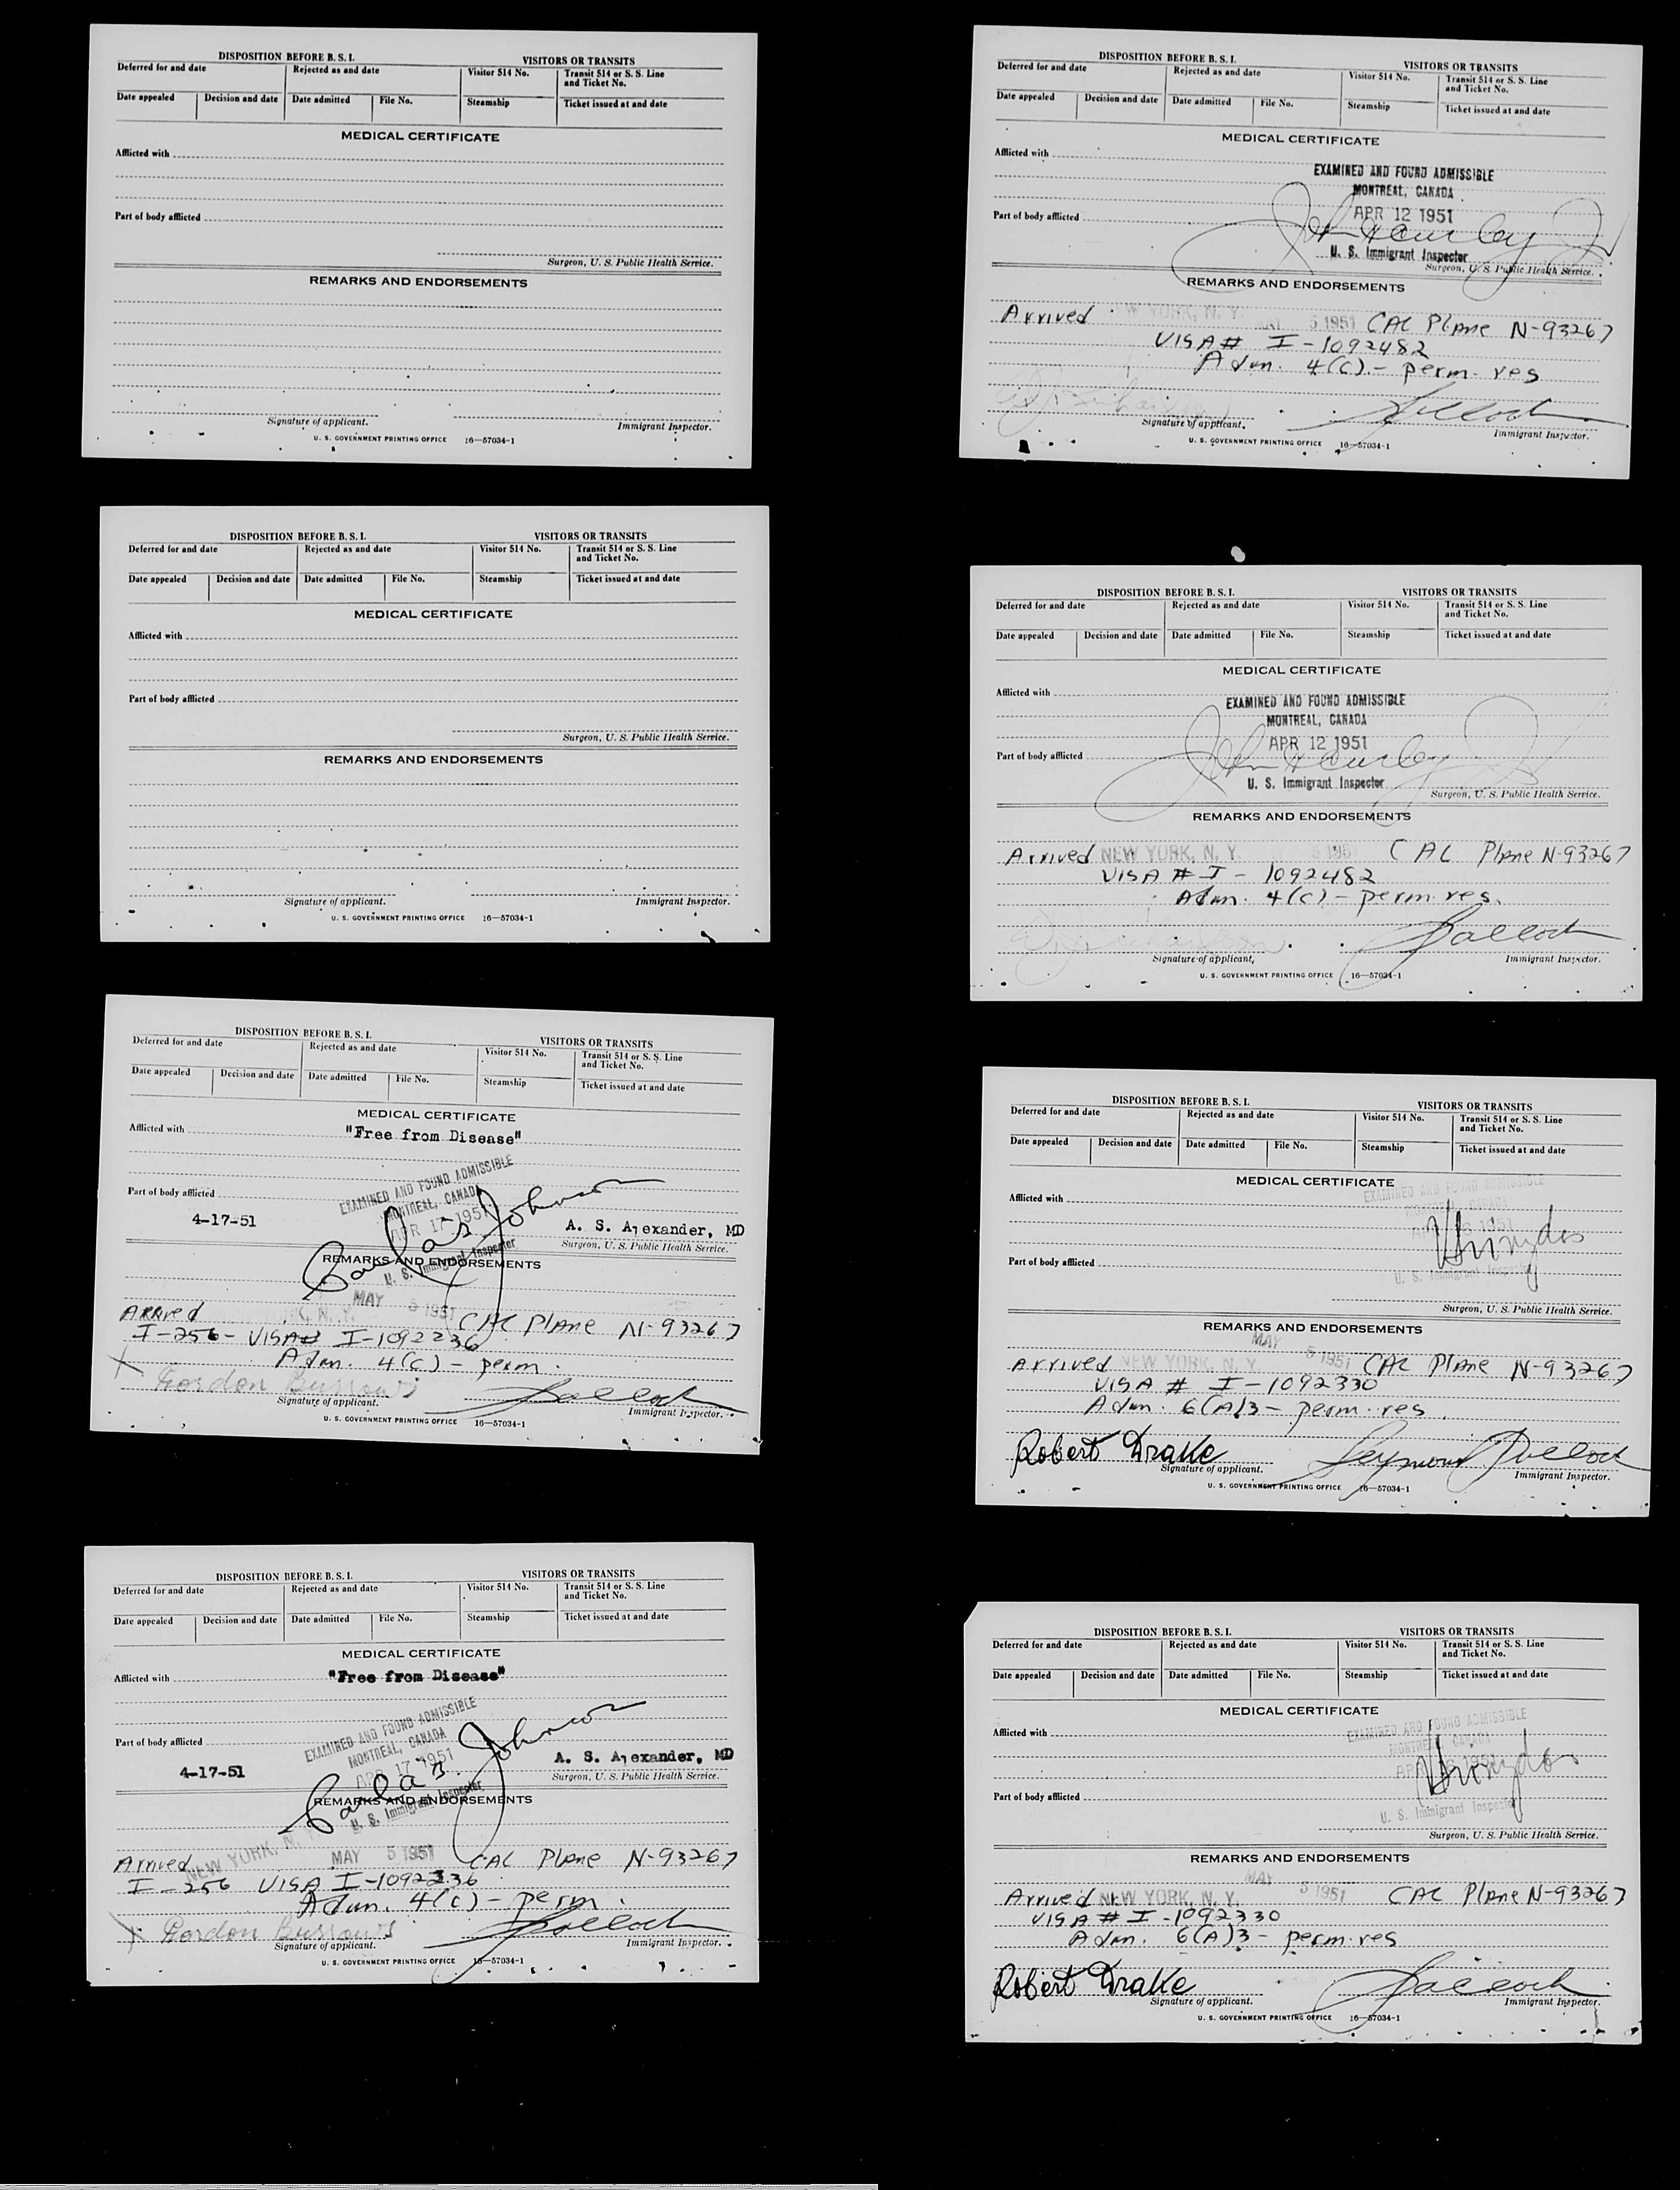 DISPOSITION BEFORE B. S. I. VISITORS OR TRANSITS
Deferred for and date Rejected as and date Visitor 514 No. Transit 514 or S. S. Line
and Ticket No.
Date appealed Decision and date Date admitted File No. Steamship Ticket issued at and date
MEDICAL CERTIFICATE
Afflicted with
Part of body afflicted
Surgeon, U. S. Public Health Service.
REMARKS AND ENDORSEMENTS
Signature of applicant. Immigrant Inspector.
U. S. GOVERNMENT PRINTING OFFICE 16—57034-1
DISPOSITION BEFORE B. S. I. VISITORS OR TRANSITS
Deferred for and date Rejected as and date Visitor 514 No. Transit 514 or S. S. Line
and Ticket No.
Date appealed Decision and date Date admitted File No. Steamship Ticket issued at and date
MEDICAL CERTIFICATE
Afflicted with
Part of body afflicted
Surgeon, U. S. Public Health Service.
REMARKS AND ENDORSEMENTS
Signature of applicant. Immigrant Inspector.
U. S. GOVERNMENT PRINTING OFFICE 16—57034-1
DISPOSITION BEFORE B. S. I. VISITORS OR TRANSITS
Deferred for and date Rejected as and date Visitor 514 No. Transit 514 or S. S. Line
and Ticket No.
Date appealed Decision and date Date admitted File No. Steamship Ticket issued at and date
MEDICAL CERTIFICATE
Afflicted with "Free from Disease"
EXAMINED AND FOUND ADMISSIBLE
MONTREAL, CANADA
Part of body afflicted
APR 17 1951
4-17-51 Johnson A. S. Alexander, MD
Surgeon, U. S. Public Health Service.
U. S. Immigrant Inspector
REMARKS AND ENDORSEMENTS
MAY 5 1951
Arrived N.Y. CAC Plane N-93267
I-256- VISA# I-1092236
Adm. 4(c) - perm.
X Gordon Burrows
Signature of applicant. Immigrant Inspector.
U. S. GOVERNMENT PRINTING OFFICE 16—57034-1
DISPOSITION BEFORE B. S. I. VISITORS OR TRANSITS
Deferred for and date Rejected as and date Visitor 514 No. Transit 514 or S. S. Line
and Ticket No.
Date appealed Decision and date Date admitted File No. Steamship Ticket issued at and date
MEDICAL CERTIFICATE
Afflicted with "Free from Disease"
EXAMINED AND FOUND ADMISSIBLE
MONTREAL, CANADA
Part of body afflicted
APR 17 1951
4-17-51 Johnson A. S. Alexander, MD
Surgeon, U. S. Public Health Service.
U. S. Immigrant Inspector
REMARKS AND ENDORSEMENTS
NEW YORK, N. MAY 5 1951
Arrived CAC Plane N-93267
I-256 VISA I-1092236
Adm. 4(c) - perm.
X Gordon Burrows
Signature of applicant. Immigrant Inspector.
U. S. GOVERNMENT PRINTING OFFICE 16—57034-1
DISPOSITION BEFORE B. S. I. VISITORS OR TRANSITS
Deferred for and date Rejected as and date Visitor 514 No. Transit 514 or S. S. Line
and Ticket No.
Date appealed Decision and date Date admitted File No. Steamship Ticket issued at and date
MEDICAL CERTIFICATE
Afflicted with
EXAMINED AND FOUND ADMISSIBLE
MONTREAL, CANADA
Part of body afflicted APR 12 1951
U. S. Immigrant Inspector
Surgeon, U. S. Public Health Service.
REMARKS AND ENDORSEMENTS
Arrived W YORK, N. Y. 5 1951 CAC Plane N-93267
VISA# I-1092482
Adm. 4(c) - perm. res
Signature of applicant. Immigrant Inspector.
U. S. GOVERNMENT PRINTING OFFICE 16—57034-1
DISPOSITION BEFORE B. S. I. VISITORS OR TRANSITS
Deferred for and date Rejected as and date Visitor 514 No. Transit 514 or S. S. Line
and Ticket No.
Date appealed Decision and date Date admitted File No. Steamship Ticket issued at and date
MEDICAL CERTIFICATE
Afflicted with
EXAMINED AND FOUND ADMISSIBLE
MONTREAL, CANADA
APR 12 1951
Part of body afflicted
U. S. Immigrant Inspector
Surgeon, U. S. Public Health Service.
REMARKS AND ENDORSEMENTS
Arrived NEW YORK, N. Y. 5 1951 CAC Plane N-93267
VISA # I - 1092482
Adm. 4(c) - perm. res.
Signature of applicant. Immigrant Inspector.
U. S. GOVERNMENT PRINTING OFFICE 16—57034-1
DISPOSITION BEFORE B. S. I. VISITORS OR TRANSITS
Deferred for and date Rejected as and date Visitor 514 No. Transit 514 or S. S. Line
and Ticket No.
Date appealed Decision and date Date admitted File No. Steamship Ticket issued at and date
MEDICAL CERTIFICATE
EXAMINED AND FOUND ADMISSIBLE
Afflicted with
MONTREAL, CANADA
Part of body afflicted
U. S. Immigrant Inspector
Surgeon, U. S. Public Health Service.
REMARKS AND ENDORSEMENTS
MAY 5 1951
Arrived NEW YORK, N. Y. CAC Plane N-93267
VISA # I-1092330
Adm. 6(A)3 - perm. res.
Robert Drake Seymour Pollock
Signature of applicant. Immigrant Inspector.
U. S. GOVERNMENT PRINTING OFFICE 16—57034-1
DISPOSITION BEFORE B. S. I. VISITORS OR TRANSITS
Deferred for and date Rejected as and date Visitor 514 No. Transit 514 or S. S. Line
and Ticket No.
Date appealed Decision and date Date admitted File No. Steamship Ticket issued at and date
MEDICAL CERTIFICATE
EXAMINED AND FOUND ADMISSIBLE
Afflicted with
MONTREAL, CANADA
Part of body afflicted
U. S. Immigrant Inspector
Surgeon, U. S. Public Health Service.
REMARKS AND ENDORSEMENTS
MAY 5 1951
Arrived NEW YORK, N. Y. CAC Plane N-93267
VISA # I-1092330
Adm. 6(A)3 - perm. res
Robert Drake
Signature of applicant. Immigrant Inspector.
U. S. GOVERNMENT PRINTING OFFICE 16—57034-1